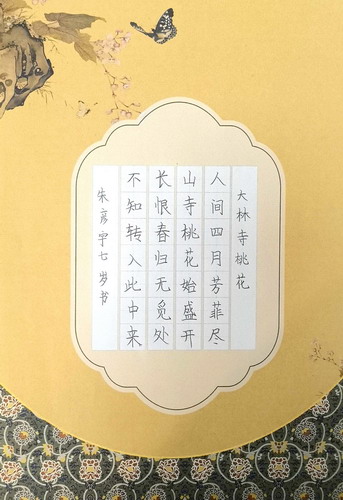 大林寺桃花
人间四月芳菲尽
山寺桃花始盛开
长恨春归无觅处
不知转入此中来
朱彦宇七岁书